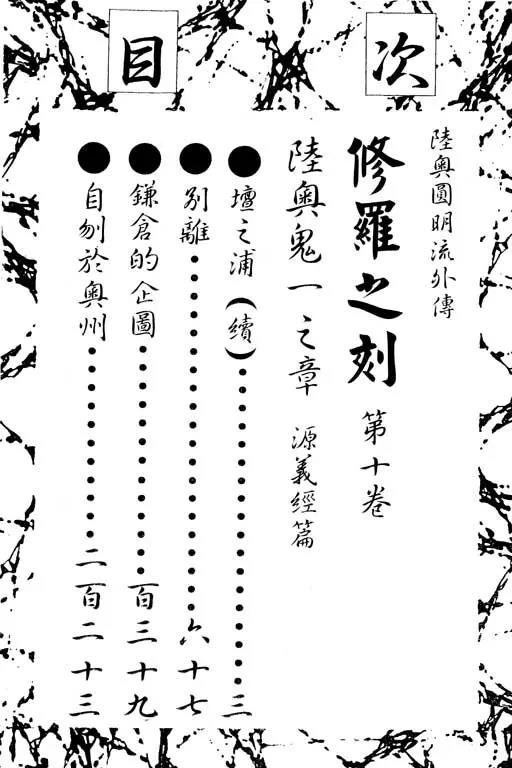 目次
陸奧圓明流外傳
修羅之刻 第十卷
陸奧鬼一之章 源義經篇
●壇之浦（續）………三
●別離………六十七
●鎌倉的企圖………百三十九
●自刎於奧州………二百二十三